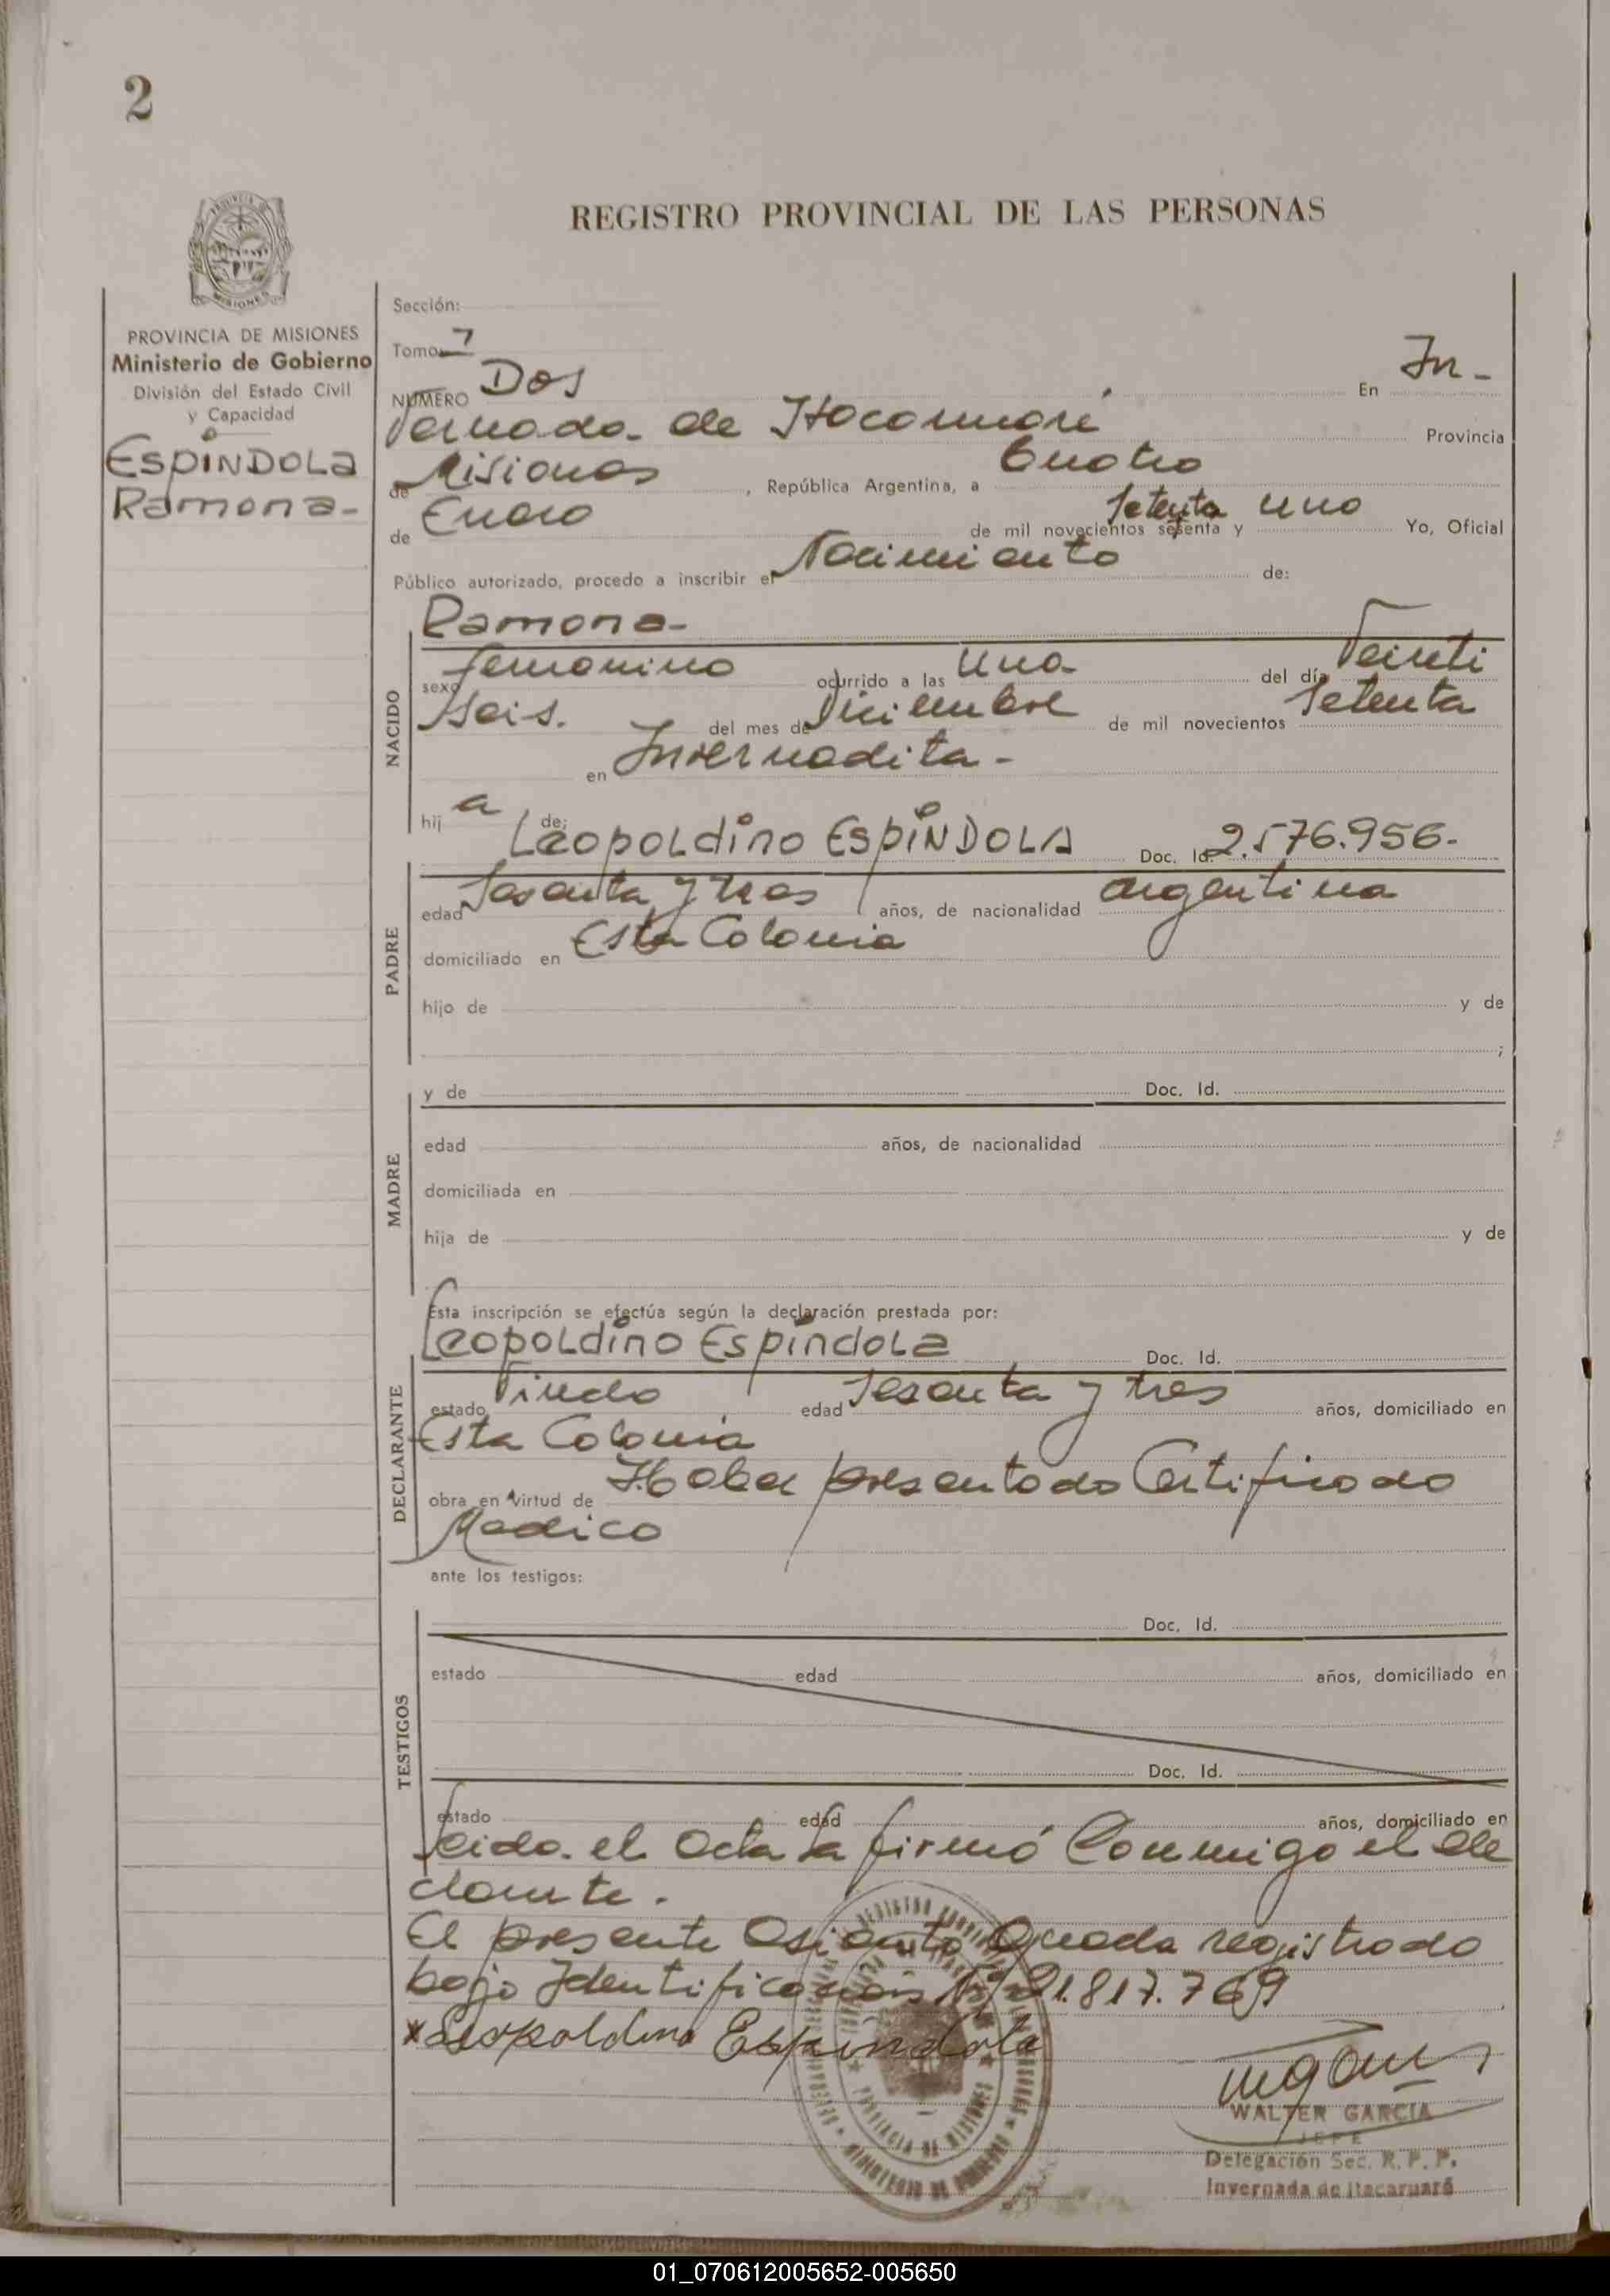 2
REGISTRO PROVINCIAL DE LAS PERSONAS
MISIONES
PROVINCIA DE MISIONES
Ministerio de Gobierno
División del Estado Civil
y Capacidad
ESPíNDOLa
Ramona-
Sección:
Tomo: 7
NUMERO Dos En In-
vernada. de Itacaruaré Provincia
de Misiones, República Argentina, a Cuatro
de Enero de mil novecientos sesenta y Setenta Uno Yo, Oficial
Público autorizado, procedo a inscribir el Nacimiento de:
NACIDO
Ramona-
sexo femenino ocurrido a las Una del día Veinti
Seis. del mes de Diciembre de mil novecientos Setenta
en Invernadita-
hij a de:
PADRE
LeopoLdino ESPíNDOLA Doc. Id. 2.576.956.
edad Sesenta y tres años, de nacionalidad argentina
domiciliado en Esta Colonia
hijo de y de
;
MADRE
y de Doc. Id.
edad años, de nacionalidad
domiciliada en
hija de y de
Esta inscripción se efectúa según la declaración prestada por:
DECLARANTE
LeopoLdino EspíndoLa Doc. Id.
estado Viudo edad Sesenta y tres años, domiciliado en
Esta Colonia
obra en virtud de Haber presentado Certificado
Medico
ante los testigos:
TESTIGOS
Doc. Id.
estado edad años, domiciliado en
Doc. Id.
estado edad años, domiciliado en
Leida. el Acta La firmó Conmigo el de
clarnte.
El presente Asiento Queda registrado
bajo Identificacion Nº 21.817.769
x Leopoldino Espindola
WALTER GARCIA
JEFE
Delegación Sec. R. P. P.
Invernada de Itacaruaré
PROVINCIA DE MISIONES
01_070612005652-005650